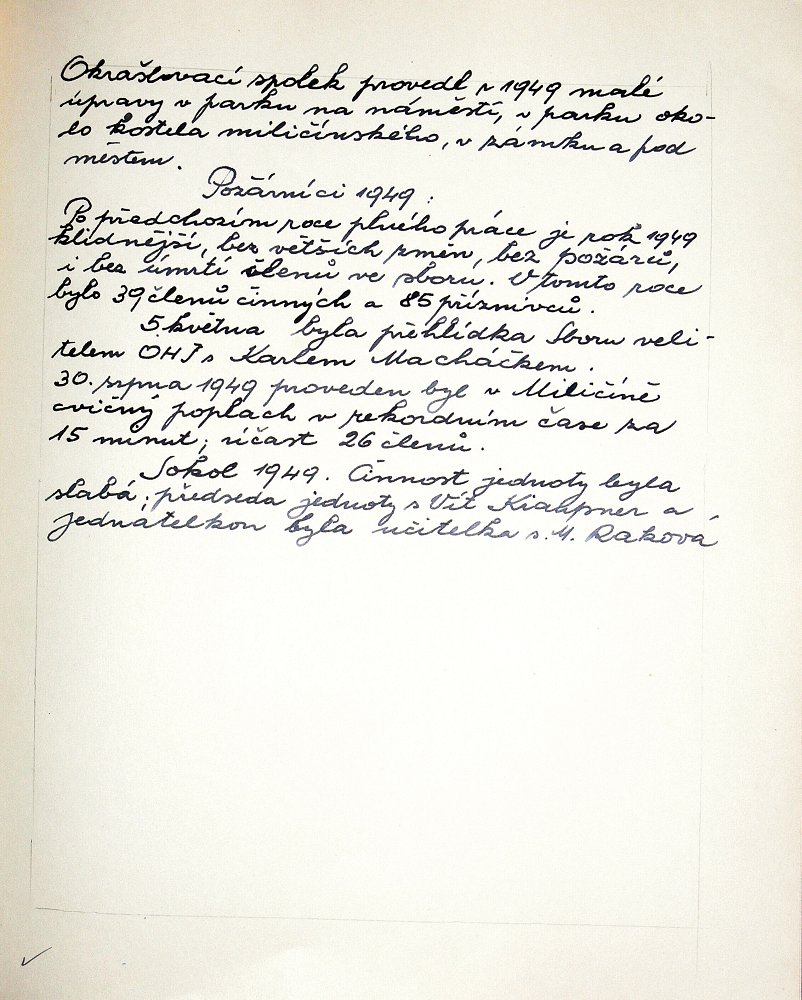 Okrašlovací spolek provedl r 1949 malé
úpravy v parku na náměstí, v parku oko-
lo kostela miličínského, v zámku a pod
městem.
Požárníci 1949:
Po předchozím roce plného práce je rok 1949
klidnější, bez větších změn, bez požárů,
i bez úmrtí členů ve sboru. V tomto roce
bylo 39 členů činných a 85 příznivců.
5 května byla přehlídka Sboru veli-
telem OHJ s Karlem Macháčkem.
30. srpna 1949 proveden byl v Miličíně
cvičný poplach v rekordním čase za
15 minut; účast 26 členů.
Sokol 1949. Činnost jednoty byla
slabá; předseda jednoty s Vít a
jednatelkou byla učitelka s. M. Raková